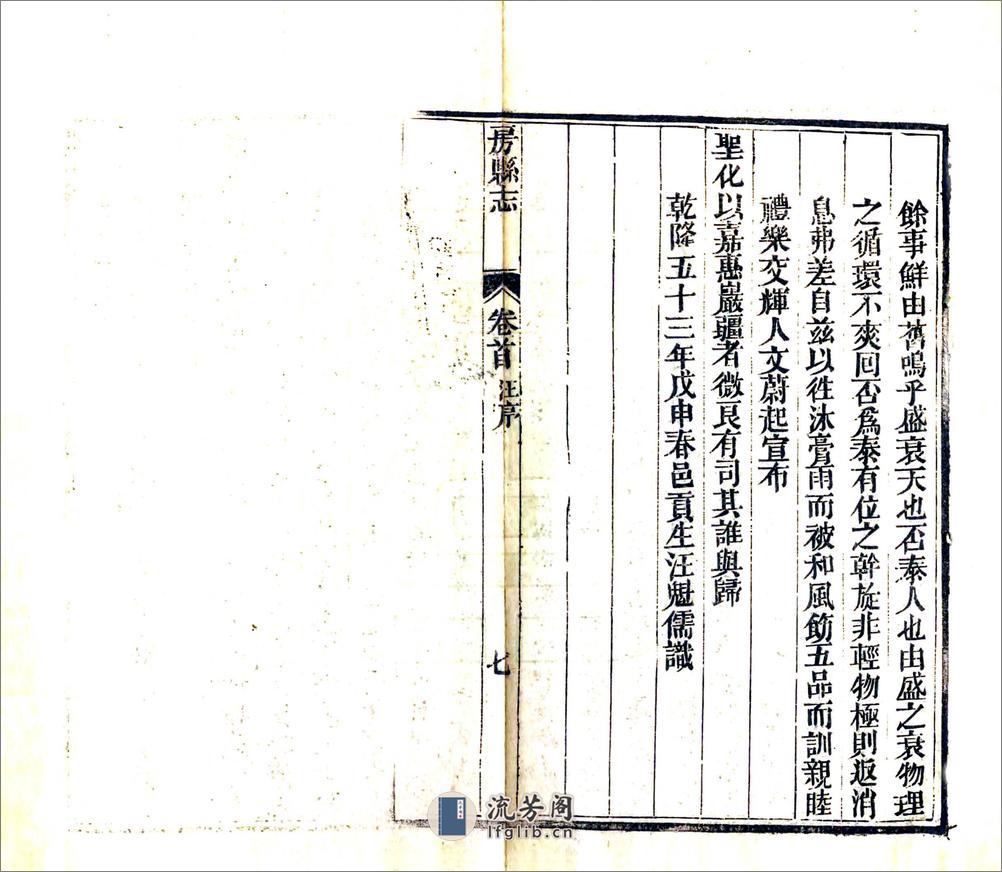 餘事鮮由舊嗚乎盛衰天也否泰人也由盛之衰物理
之循環不爽回否爲泰有位之幹旋非輕物極則返消
息弗差自兹以徃沐膏雨而被和風飭五品而訓親睦
禮樂交輝人文蔚起宣布
聖化以嘉惠巖疆者微良有司其誰與歸
乾隆五十三年戊申春邑貢生汪魁儒識
房縣志
卷首
汪序
七
流芳阁
lfglib.cn